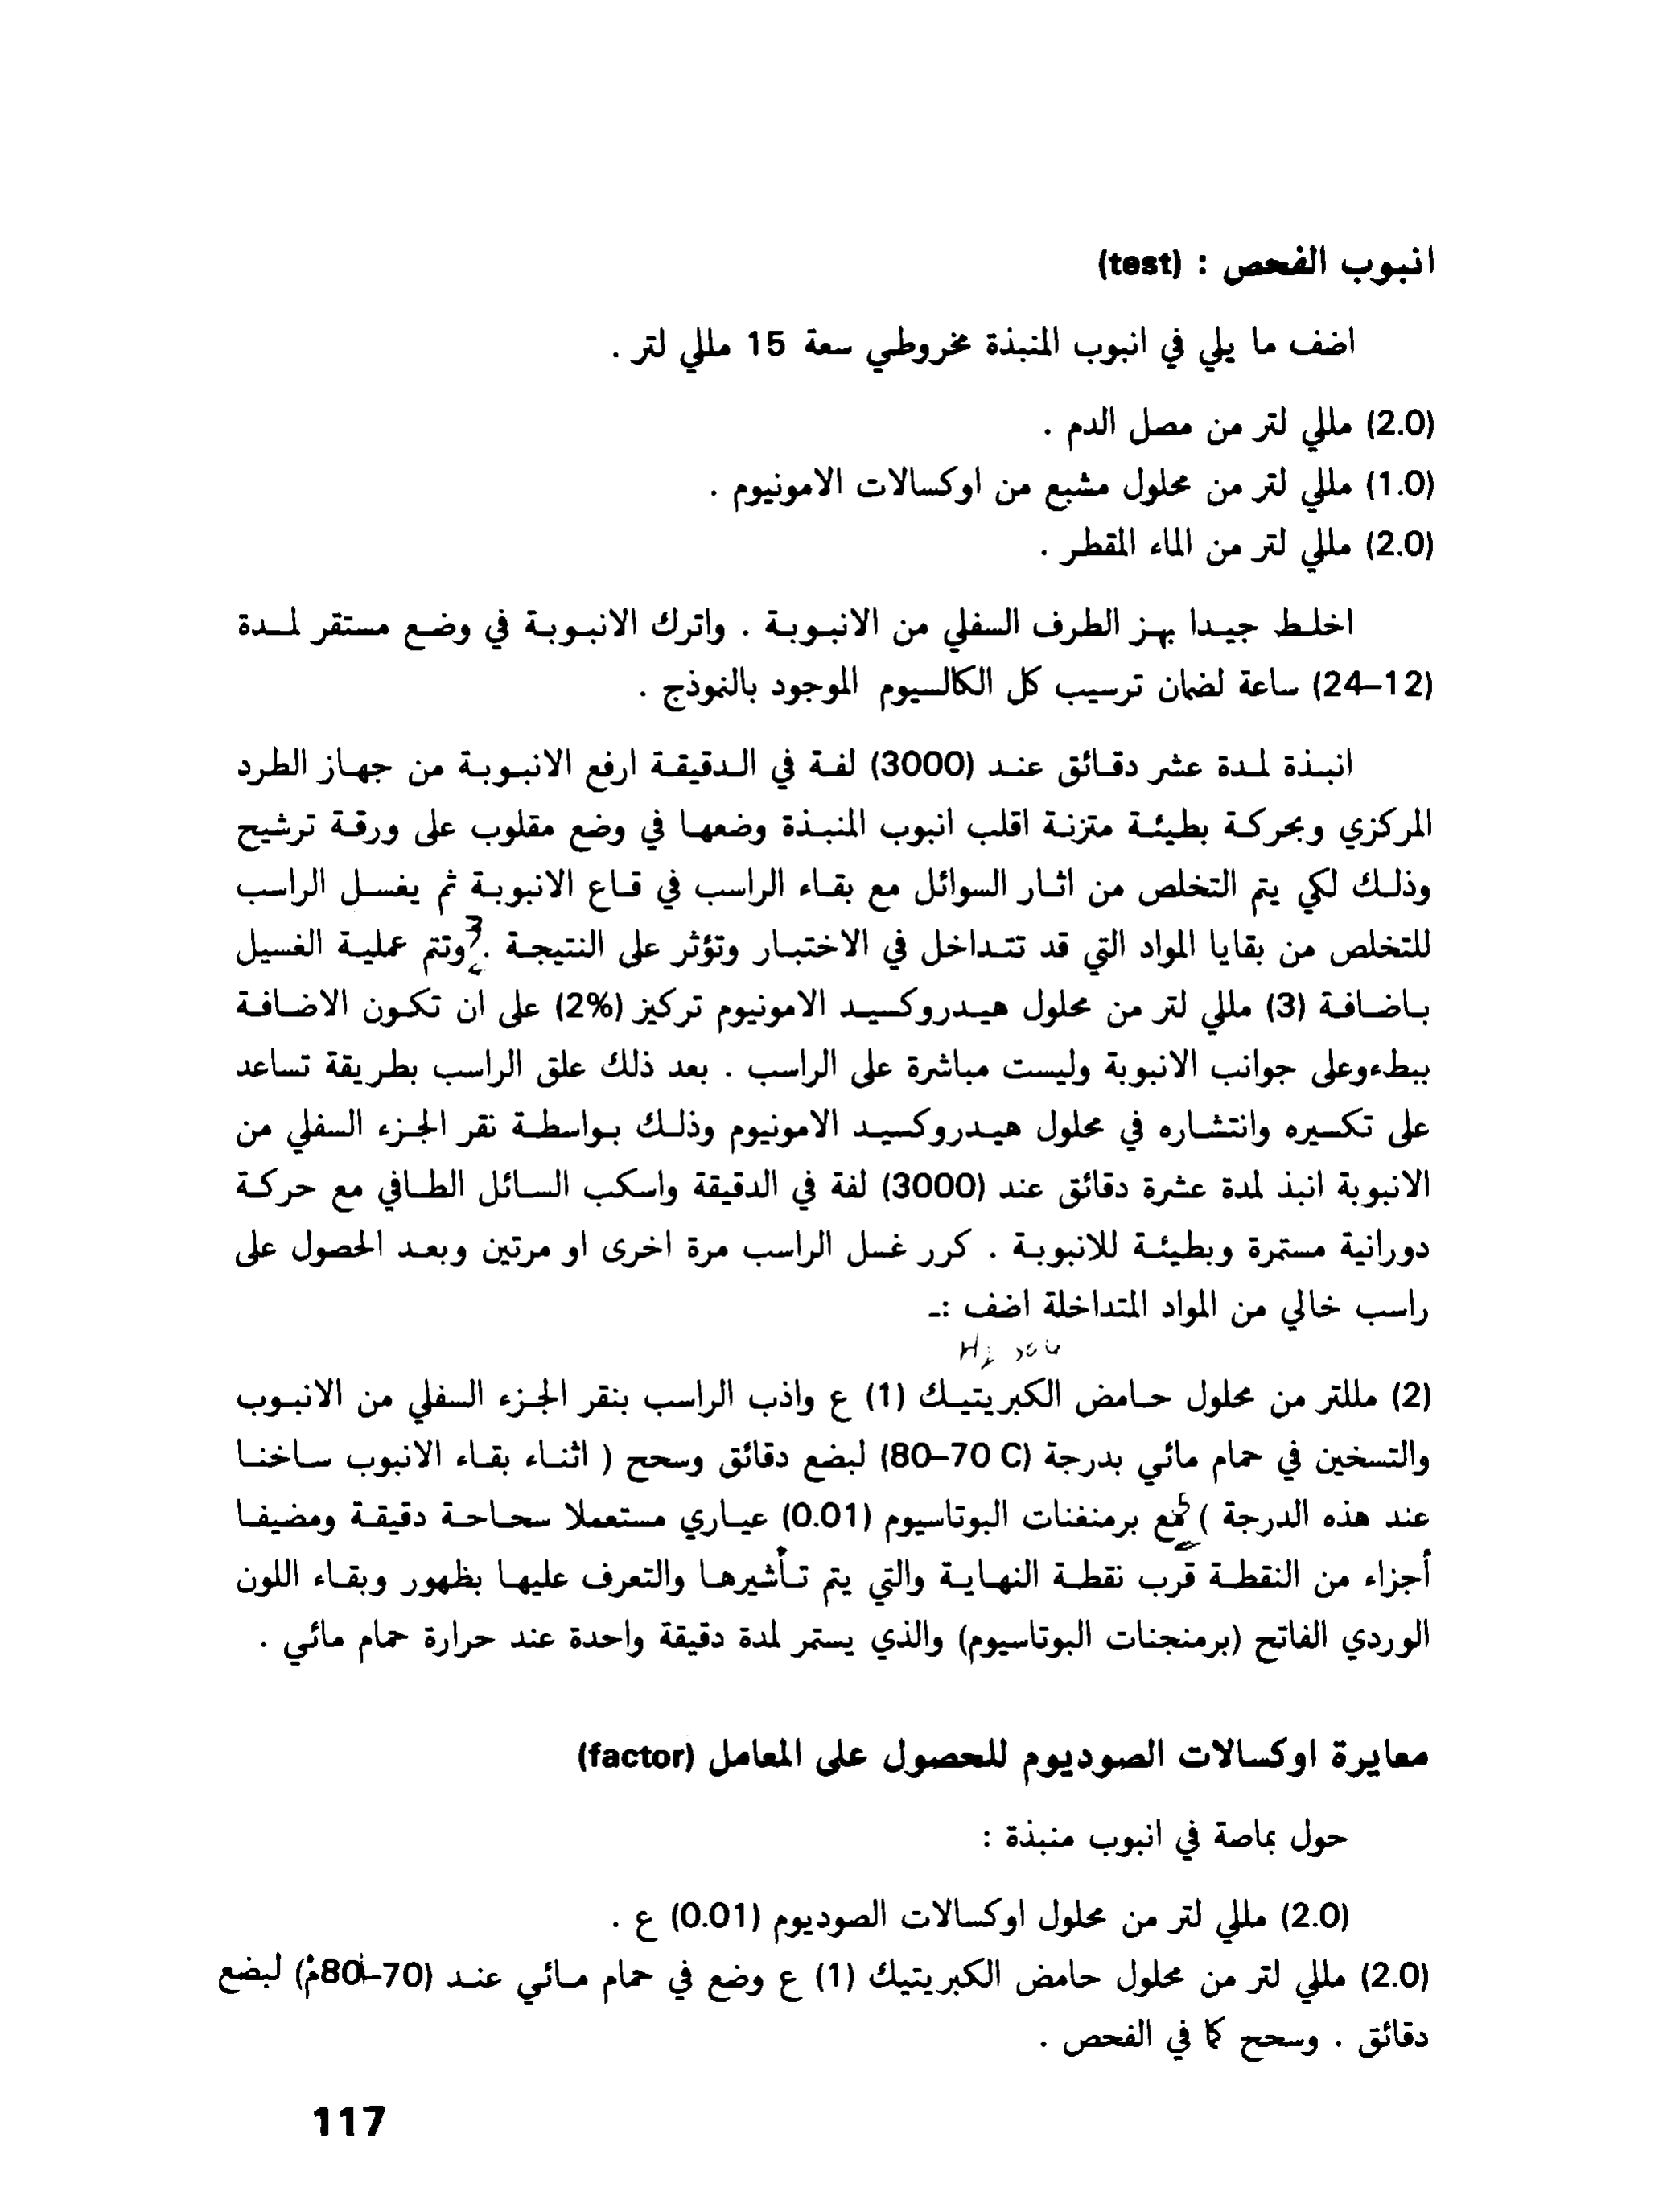 انبوب الفحص : (test)
اضف ما يلي في انبوب المنبذة مخروطي سعة 15 مللي لتر .
(2.0) مللي لتر من مصل الدم .
(1.0) مللي لتر من محلول مشبع من اوكسالات الامونيوم .
(2.0) مللي لتر من الماء المقطر .
اخلط جيدا بهز الطرف السفلي من الانبوبة . واترك الانبوبة في وضع مستقر لمدة
(12–24) ساعة لضمان ترسيب كل الكالسيوم الموجود بالنموذج .
انبذة لمدة عشر دقائق عند (3000) لفة في الدقيقة ارفع الانبوبة من جهاز الطرد
المركزي وبحركة بطيئة متزنة اقلب انبوب المنبذة وضعها في وضع مقلوب على ورقة ترشيح
وذلك لكي يتم التخلص من اثار السوائل مع بقاء الراسب في قاع الانبوبة ثم يغسل الراسب
للتخلص من بقايا المواد التي قد تتداخل في الاختبار وتؤثر على النتيجة . وتتم عملية الغسيل
باضافة (3) مللي لتر من محلول هيدروكسيد الامونيوم تركيز (2%) على ان تكون الاضافة
ببطءوعلى جوانب الانبوبة وليست مباشرة على الراسب . بعد ذلك علق الراسب بطريقة تساعد
على تكسيره وانتشاره في محلول هيدروكسيد الامونيوم وذلك بواسطة نقر الجزء السفلي من
الانبوبة انبذ لمدة عشرة دقائق عند (3000) لفة في الدقيقة واسكب السائل الطافي مع حركة
دورانية مستمرة وبطيئة للانبوبة . كرر غسل الراسب مرة اخرى او مرتين وبعد الحصول على
راسب خالي من المواد المتداخلة اضف :ـ
(2) مللتر من محلول حامض الكبريتيك (1) ع واذب الراسب بنقر الجزء السفلي من الانبوب
والتسخين في حمام مائي بدرجة (80–70 C) لبضع دقائق وسحح ( اثناء بقاء الانبوب ساخنا
عند هذه الدرجة ) مع برمنغنات البوتاسيوم (0.01) عياري مستعملا سحاحة دقيقة ومضيفا
أجزاء من النقطة قرب نقطة النهاية والتي يتم تأشيرها والتعرف عليها بظهور وبقاء اللون
الوردي الفاتح (برمنجنات البوتاسيوم) والذي يستمر لمدة دقيقة واحدة عند حرارة حمام مائي .
معايرة اوكسالات الصوديوم للحصول على المعامل (factor)
حول بماصة في انبوب منبذة :
(2.0) مللي لتر من محلول اوكسالات الصوديوم (0.01) ع .
(2.0) مللي لتر من محلول حامض الكبريتيك (1) ع وضع في حمام مائي عند (70–80م) لبضع
دقائق . وسحح كما في الفحص .
117